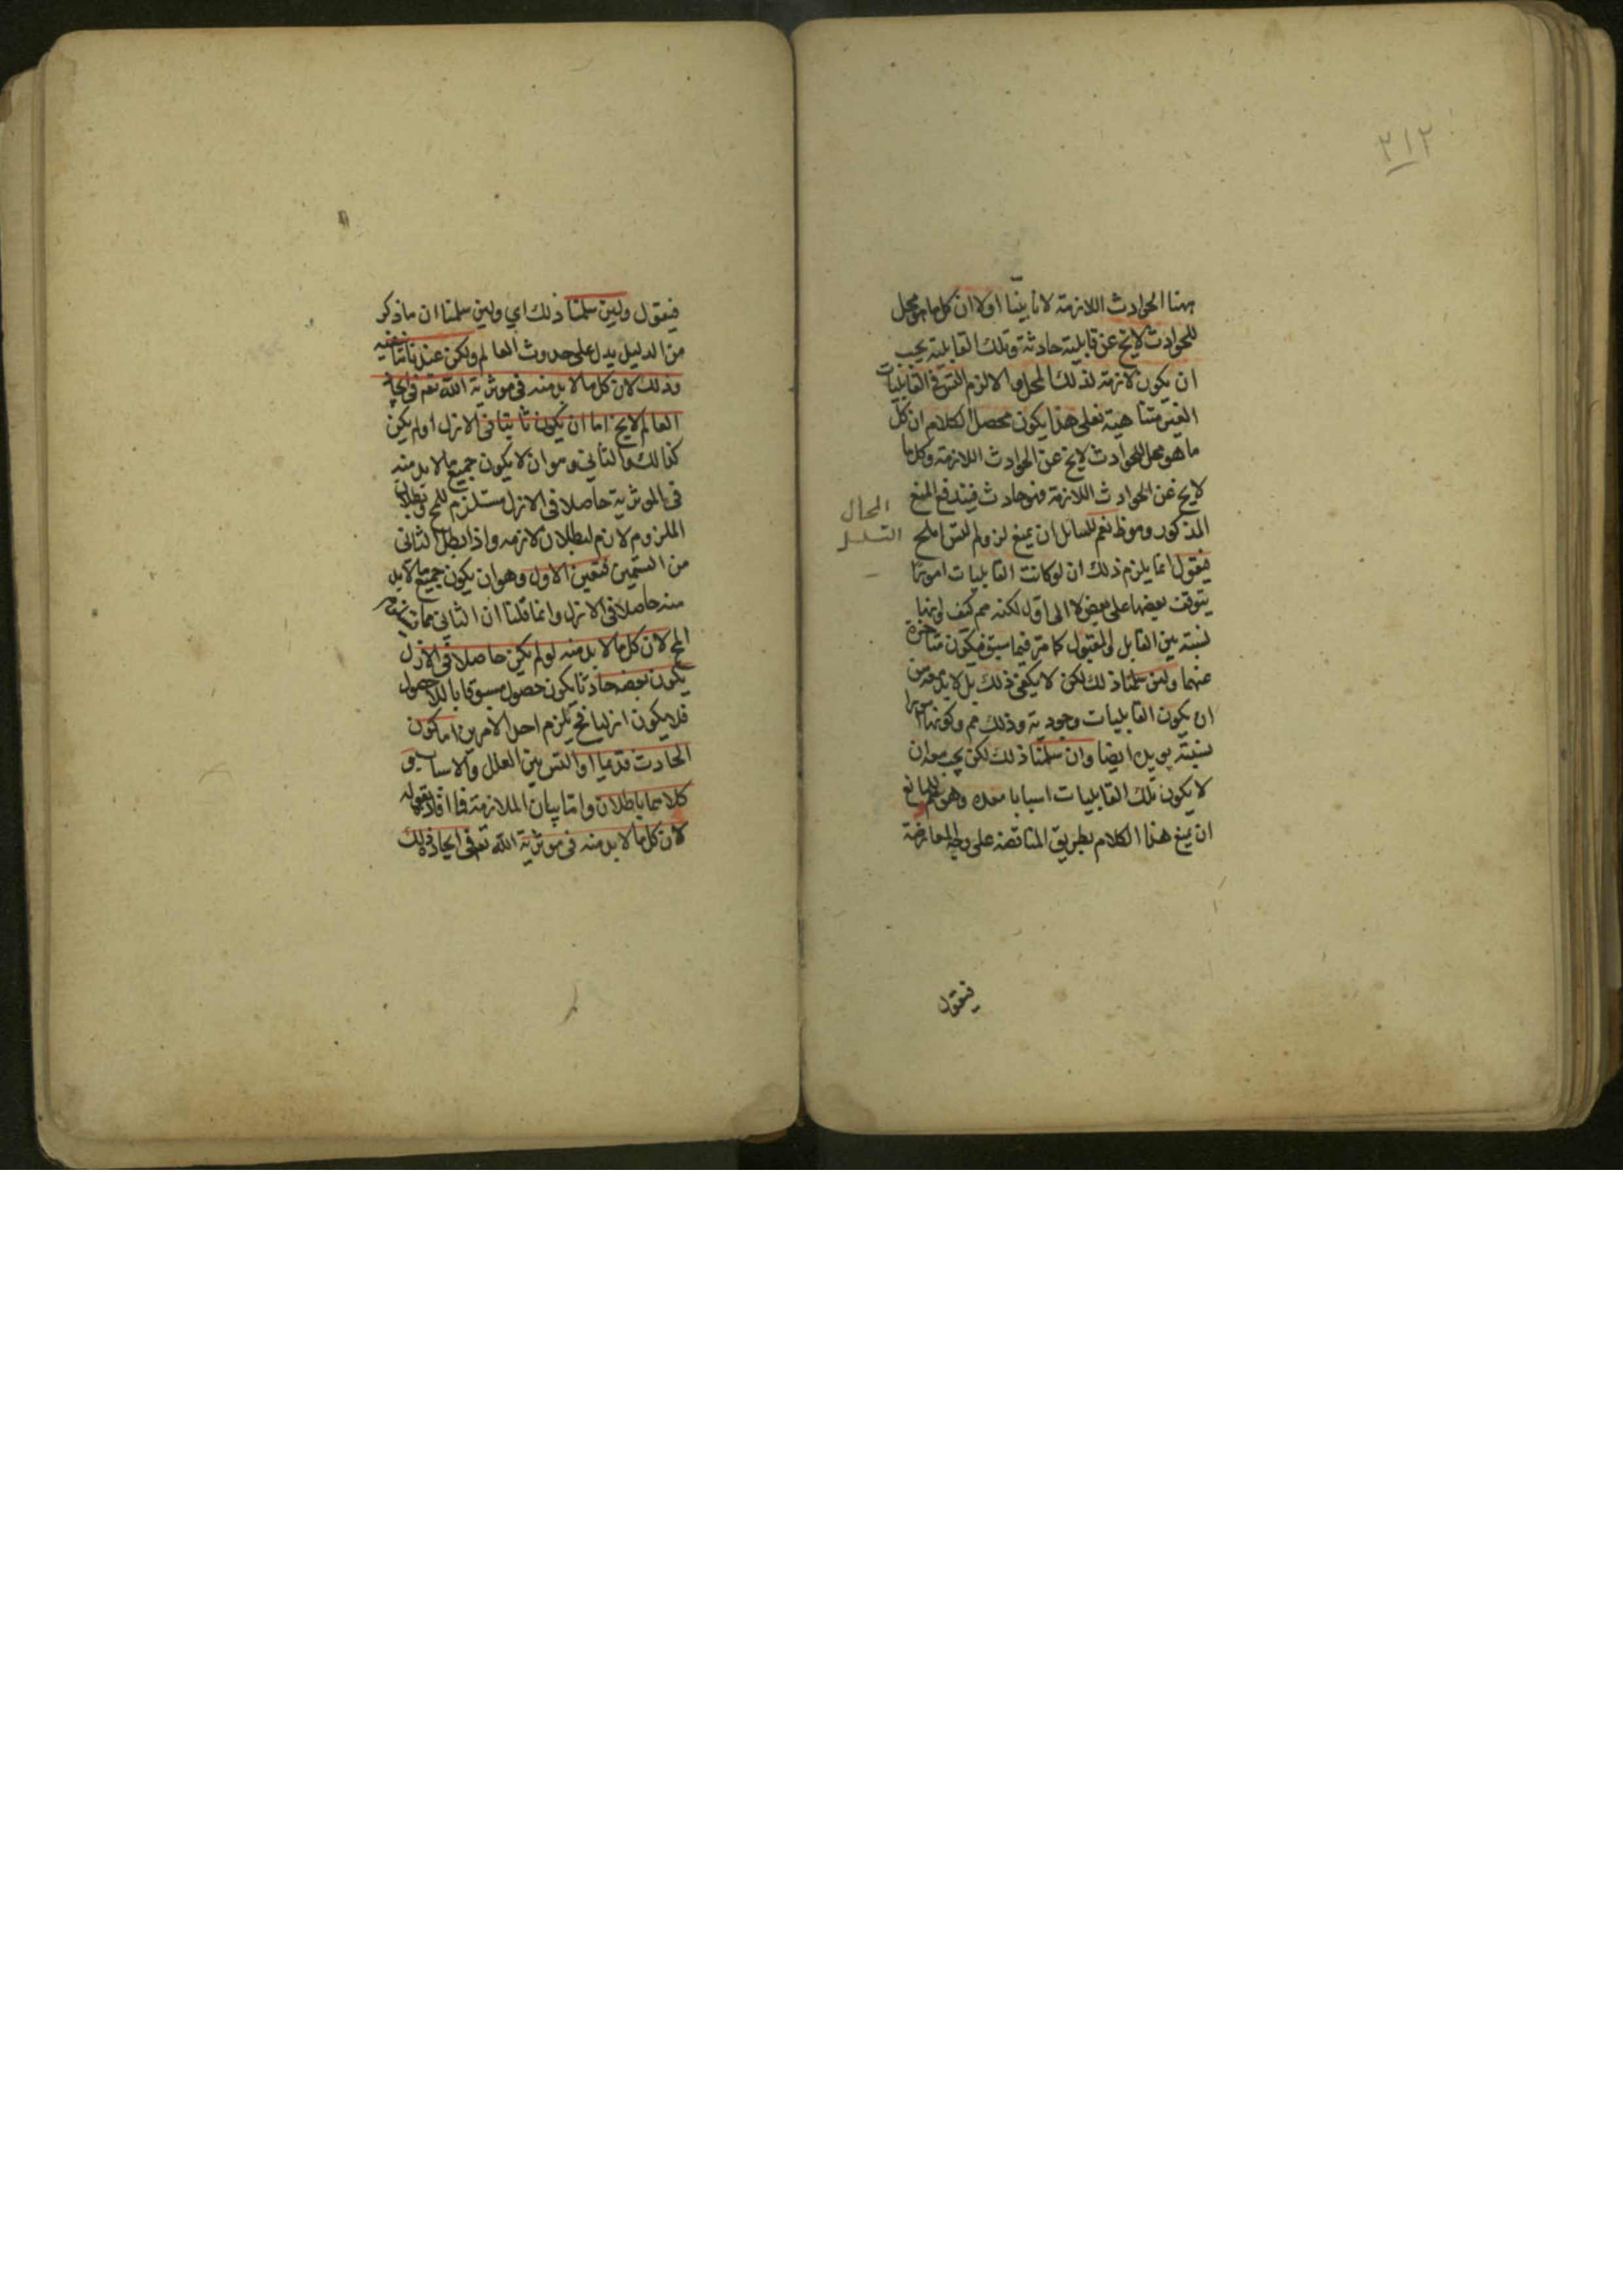 ٢١٢
ههنا الحوادث اللازمة لانا بينا اولا ان كل ما هو محل
للحوادث لايخ عن قابلية حادثة وتلك القابلية يجب
ان يكون لازمة لذلك المحل والا لزم التس فى القابليات
الغير متناهية فعلى هذا يكون محصل الكلام ان كل
ما هو محل للحوادث لايخ عن الحوادث اللازمة وكل ما
لايخ عن الحوادث اللازمة فهو حادث فيندفع المنع
المذكور وهو ظ نعم للسائل ان يمنع لزوم التس المح
المحال
التسلسل
فيقول انما يلزم ذلك ان لو كانت القابليات امورا
يتوقف بعضها على بعض لا الى اول لكنه مم كيف وانها
نسبة بين القابل والمقبول كما مر فيما سبق فيكون متاخرة
عنهما ولئن سلمنا ذلك لكن لا يكفى ذلك بل لا بد معه من
ان يكون القابليات وجودية وذلك مم وكونها
نسبية يويده ايضا وان سلمنا ذلك لكن يجب معه ان
لا يكون تلك القابليات اسبابا معده وهو مم للمانع
ان يمنع هذا الكلام بطريق المناقضة على وجه المعارضة
فيقول
فيقول ولئن سلمنا ذلك اي ولئن سلمنا ان ما ذكر
من الدليل يدل على حدوث العالم ولكن عندنا ما ينفيه
وذلك لان كل ما لا بد منه فى موثرية الله تع فى ايجاد
العالم لايخ اما ان يكون ثابتا فى الازل او لم يكن
كذلك والثاني وهو ان لا يكون جميع ما لا بد منه
فى الموثرية حاصلا فى الازل مستلزم للمح وبطلان
الملزوم لازم لبطلان لازمه واذا بطل الثانى
من القسمين تعين الاول وهو ان يكون جميع ما لا بد
منه حاصلا فى الازل وانما قلنا ان الثانى مما يستلزم
المح لان كل ما لا بد منه لو لم يكن حاصلا فى الازل
يكون بعضه حادثا يكون حصوله مسبوقا باللاحصول
فلا يكون ازليا فح يلزم احد الامرين اما كون
الحادث قديما او التس بين العلل والاسباب
كلاهما باطلان واما بيان الملازمة فما افاد بقوله
لان كل ما لا بد منه فى موثرية الله تع فى ايجاد ذلك